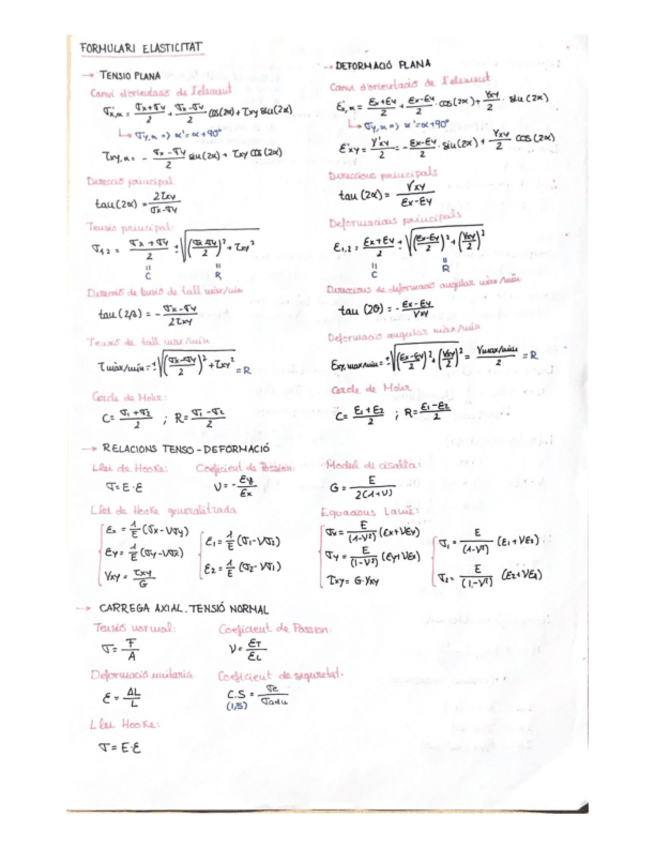 FORMULARI ELASTICITAT
→ TENSIO PLANA
Canvi d'orientacio de l'element
σx,α = (σx+σy)/2 + (σx-σy)/2 · cos(2α) + τxy sin(2α)
↳ σy,α => α'=α+90°
τxy,α = - (σx-σy)/2 sin(2α) + τxy cos(2α)
Direcció principal
tan(2α) = 2τxy/(σx-σy)
Tensio principal:
σ1,2 = (σx+σy)/2 ± √(((σx-σy)/2)² + τxy²)
" C " R
Direcció de tensió de tall màx/min
tan(2β) = - (σx-σy)/(2τxy)
Tensió de tall màx/min
τmàx/min = ± √(((σx-σy)/2)² + τxy²) = R
Cercle de Mohr:
C = (σ1+σ2)/2 ; R = (σ1-σ2)/2
→ DEFORMACIÓ PLANA
Canvi d'orientacio de l'element
εx,α = (εx+εy)/2 + (εx-εy)/2 · cos(2α) + γxy/2 · sin(2α)
↳ σy,α => α'=α+90°
ε'xy = γ'xy/2 = - (εx-εy)/2 · sin(2α) + γxy/2 cos(2α)
Direccions principals
tan(2α) = γxy/(εx-εy)
Deformacions principals
ε1,2 = (εx+εy)/2 ± √(((εx-εy)/2)² + (γxy/2)²)
" C " R
Direccions de deformació angular màx/min
tan(2θ) = - (εx-εy)/γxy
Deformació angular màx/min
εxy,max/min = ± √(((εx-εy)/2)² + (γxy/2)²) = γmax/min/2 = R
Cercle de Mohr
C = (ε1+ε2)/2 ; R = (ε1-ε2)/2
→ RELACIONS TENSO-DEFORMACIÓ
Llei de Hooke: Coeficient de Poisson: Mòdul de cisalla:
σ=E·ε ν = - εy/εx G = E/(2(1+ν))
Llei de Hooke generalitzada Equacions Lamé:
εx = 1/E (σx-νσy)
εy = 1/E (σy-νσx)
γxy = τxy/G
ε1 = 1/E (σ1-νσ2)
ε2 = 1/E (σ2-νσ1)
σx = E/(1-ν²) (εx+νεy)
σy = E/(1-ν²) (εy+νεx)
τxy = G·γxy
σ1 = E/(1-ν²) (ε1+νε2)
σ2 = E/(1-ν²) (ε2+νε1)
→ CARREGA AXIAL. TENSIÓ NORMAL
Tensió normal: Coeficient de Poisson:
σ = F/A ν = εT/εL
Deformació unitaria Coeficient de seguretat.
ε = ΔL/L C.S = σe/σadm
(1,5)
Llei Hooke:
σ = E·ε